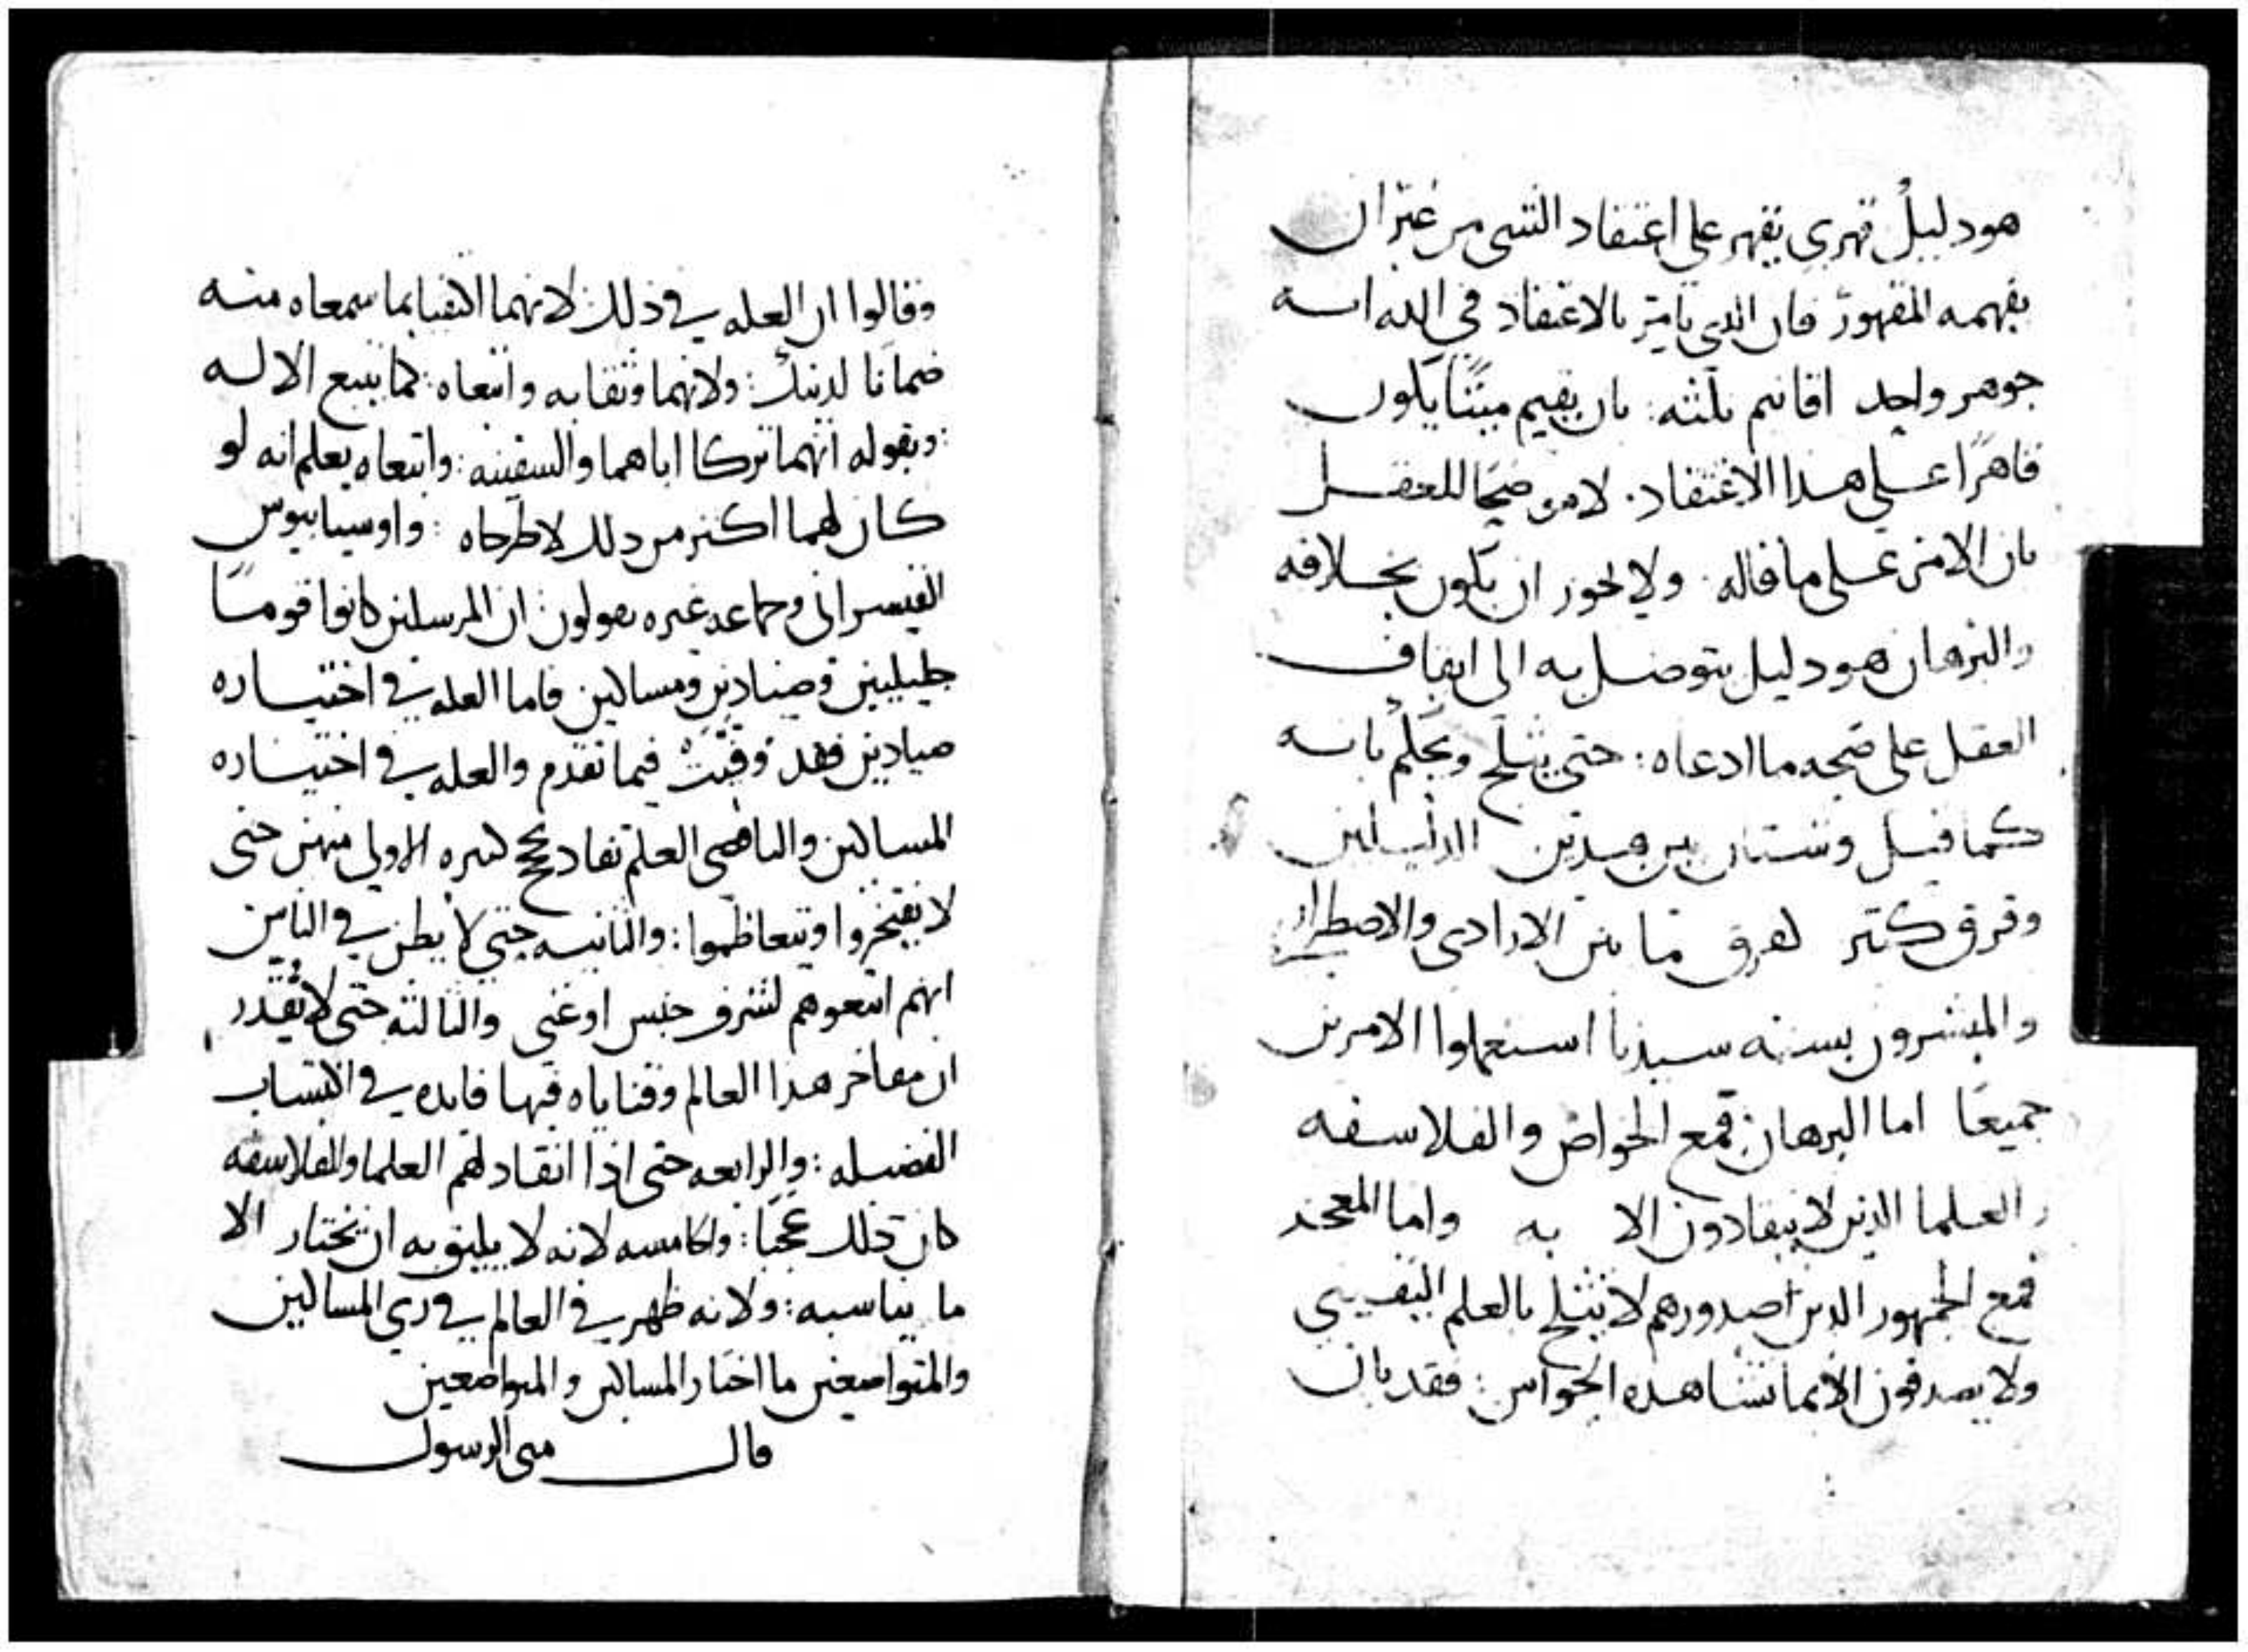 هو دليل قهري يقهر على اعتقاد الشي من غير ان
يفهمه المقهور فان الذي يامر بالاعتقاد في الله انه
جوهر واحد اقانيم ثلثه: بان يقيم ميتا يكون
قاهرا على هذا الاعتقاد. لا موضحا للعقل
بان الامر على ما قاله. ولا يجوز ان يكون بخلافه
والبرهان هو دليل يتوصل به الى ايقاف
العقل على صحه ما ادعاه: حتى يثلج ويحكم بانه
كما قيل وشتان بين هذين الدليلين
وفرق كثير كفرق ما بين الارادي والاضطراري
والمبشرون بسنه سيدنا استعملوا الامرين
جميعا اما البرهان فمع الخواص والفلاسفه
والعلما الذين لا ينقادون الا به واما المعجز
فمع الجمهور الذين صدورهم لا تثلج بالعلم اليقيني
ولا يصدقون الا بما تشاهده الحواس: فقد بان
وقالوا ان العله في ذلك لانهما اكتفيا بما سمعاه منه
ضمانا لدينك: ولانهما وثقا به واتبعاه: كما يتبع الاله
: وبقوله انهما تركا اباهما والسفينه: واتبعاه يعلم انه لو
كان لهما اكثر من ذلك لاطرحاه: واوسيابيوس
القيسراني وجماعه غيره يقولون: ان المرسلين كانوا قوما
جليليين وصيادين ومساكين فاما العله في اختياره
صيادين فقد وفيت فيما تقدم والعله في اختياره
المساكين والناقصي العلم تقاد بحجج كثيره الاولى منهن حتى
لا يفتخروا ويتعاظموا: والثانيه حتى لا يظن في الناس
انهم اتبعوهم لشرف جنس او غنى والثالثه حتى لا يقدر
ان مفاخر هذا العالم وقناياه فيها فايده في اكتساب
الفضيله: والرابعه حتى اذا انقاد لهم العلما والفلاسفه
كان ذلك عجبا: والخامسه لانه لا يليق به ان يختار الا
ما يناسبه: ولانه ظهر في العالم في زي المساكين
والمتواضعين ما اختار المساكين والمتواضعين
قال متى الرسول